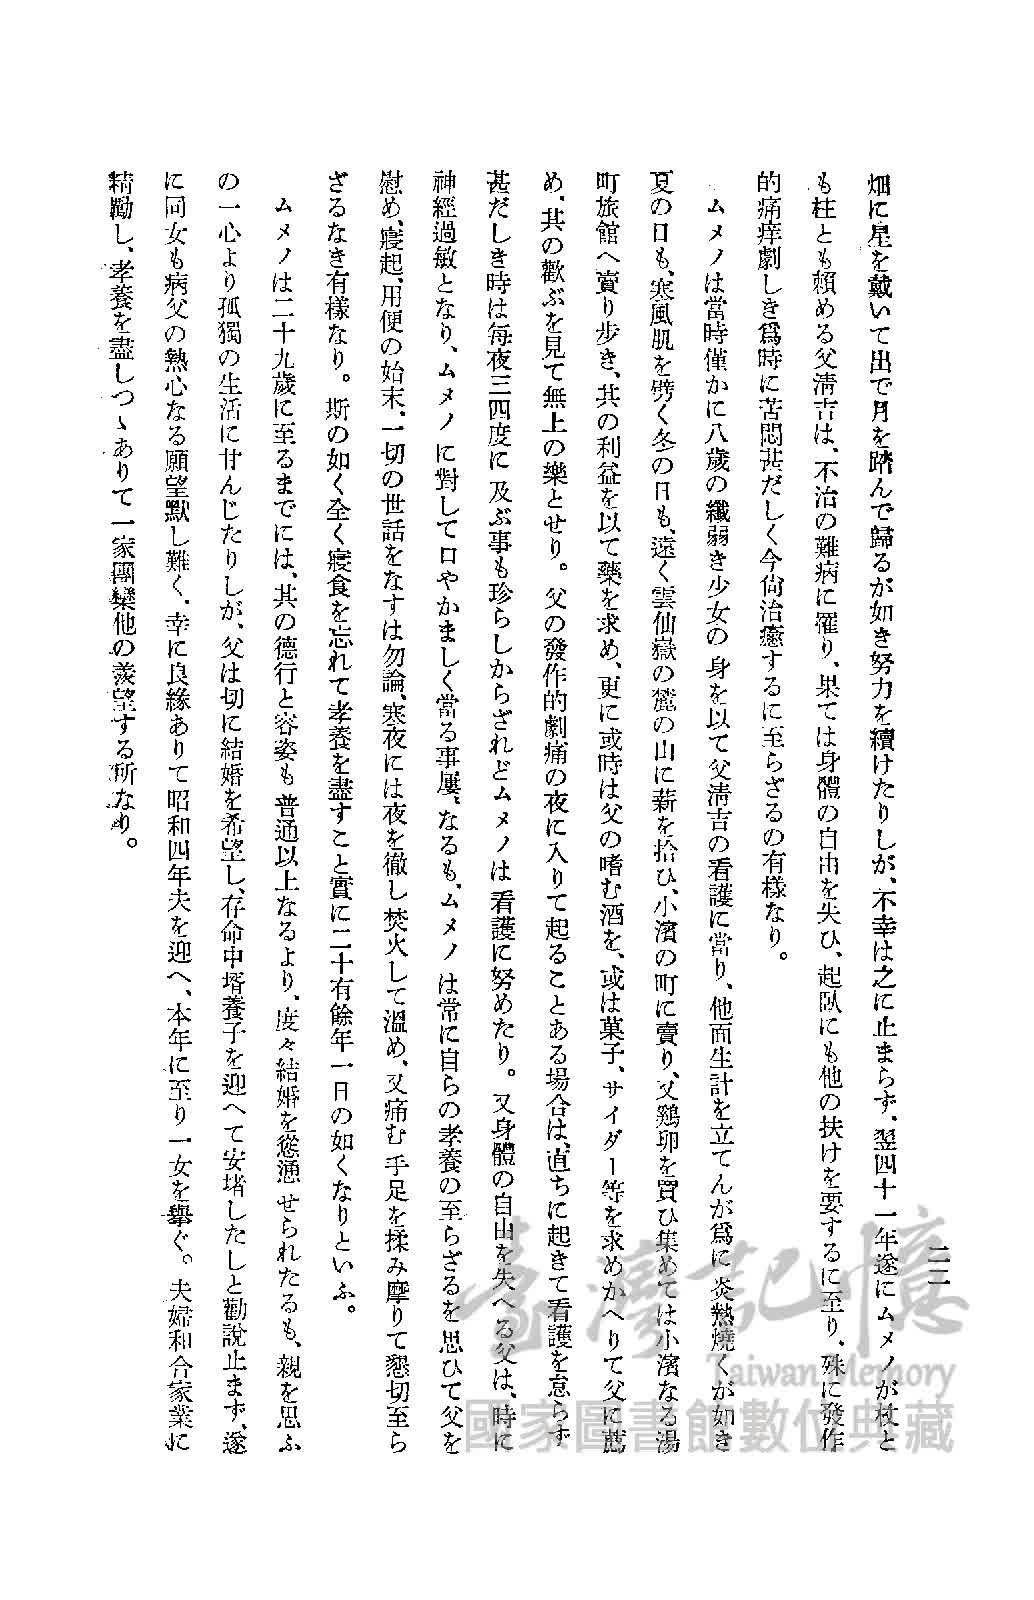 二二
畑に星を戴いて出で月を踏んで歸るが如き努力を續けたりしが、不幸は之に止まらず、翌四十一年遂にムメノが杖と
も柱とも賴める父淸吉は、不治の難病に罹り、果ては身體の自由を失ひ、起臥にも他の扶けを要するに至り、殊に發作
的痛痒劇しき爲時に苦悶甚だしく今尙治癒するに至らざるの有樣なり。
ムメノは當時僅かに八歲の纖弱き少女の身を以て父淸吉の看護に當り、他面生計を立てんが爲に炎熱燒くが如き
夏の日も、寒風肌を劈く冬の日も、遠く雲仙嶽の麓の山に薪を拾ひ、小濱の町に賣り、又鷄卵を買ひ集めては小濱なる湯
町旅館へ賣り步き、其の利益を以て藥を求め、更に或時は父の嗜む酒を、或は菓子、サイダー等を求めかへりて父に薦
め、其の歡ぶを見て無上の樂とせり。父の發作的劇痛の夜に入りて起ることある場合は、直ちに起きて看護を怠らず
甚だしき時は每夜三四度に及ぶ事も珍らしからざれどムメノは看護に努めたり。又身體の自由を失へる父は、時に
神經過敏となり、ムメノに對して口やかましく當る事屢〻なるも、ムメノは常に自らの孝養の至らざるを思ひて父を
慰め、寢起、用便の始末、一切の世話をなすは勿論、寒夜には夜を徹し焚火して溫め、又痛む手足を揉み摩りて懇切至ら
ざるなき有樣なり。斯の如く全く寢食を忘れて孝養を盡すこと實に二十有餘年一日の如くなりといふ。
ムメノは二十九歲に至るまでには、其の德行と容姿も普通以上なるより、度々結婚を慫慂せられたるも、親を思ふ
の一心より孤獨の生活に甘んじたりしが、父は切に結婚を希望し、存命中壻養子を迎へて安堵したしと勸說止まず、遂
に同女も病父の熱心なる願望默し難く、幸に良緣ありて昭和四年夫を迎へ、本年に至り一女を擧ぐ。夫婦和合家業に
精勵し、孝養を盡しつゝありて一家團欒他の羨望する所なり。
臺灣記憶
Taiwan Memory
國家圖書館數位典藏